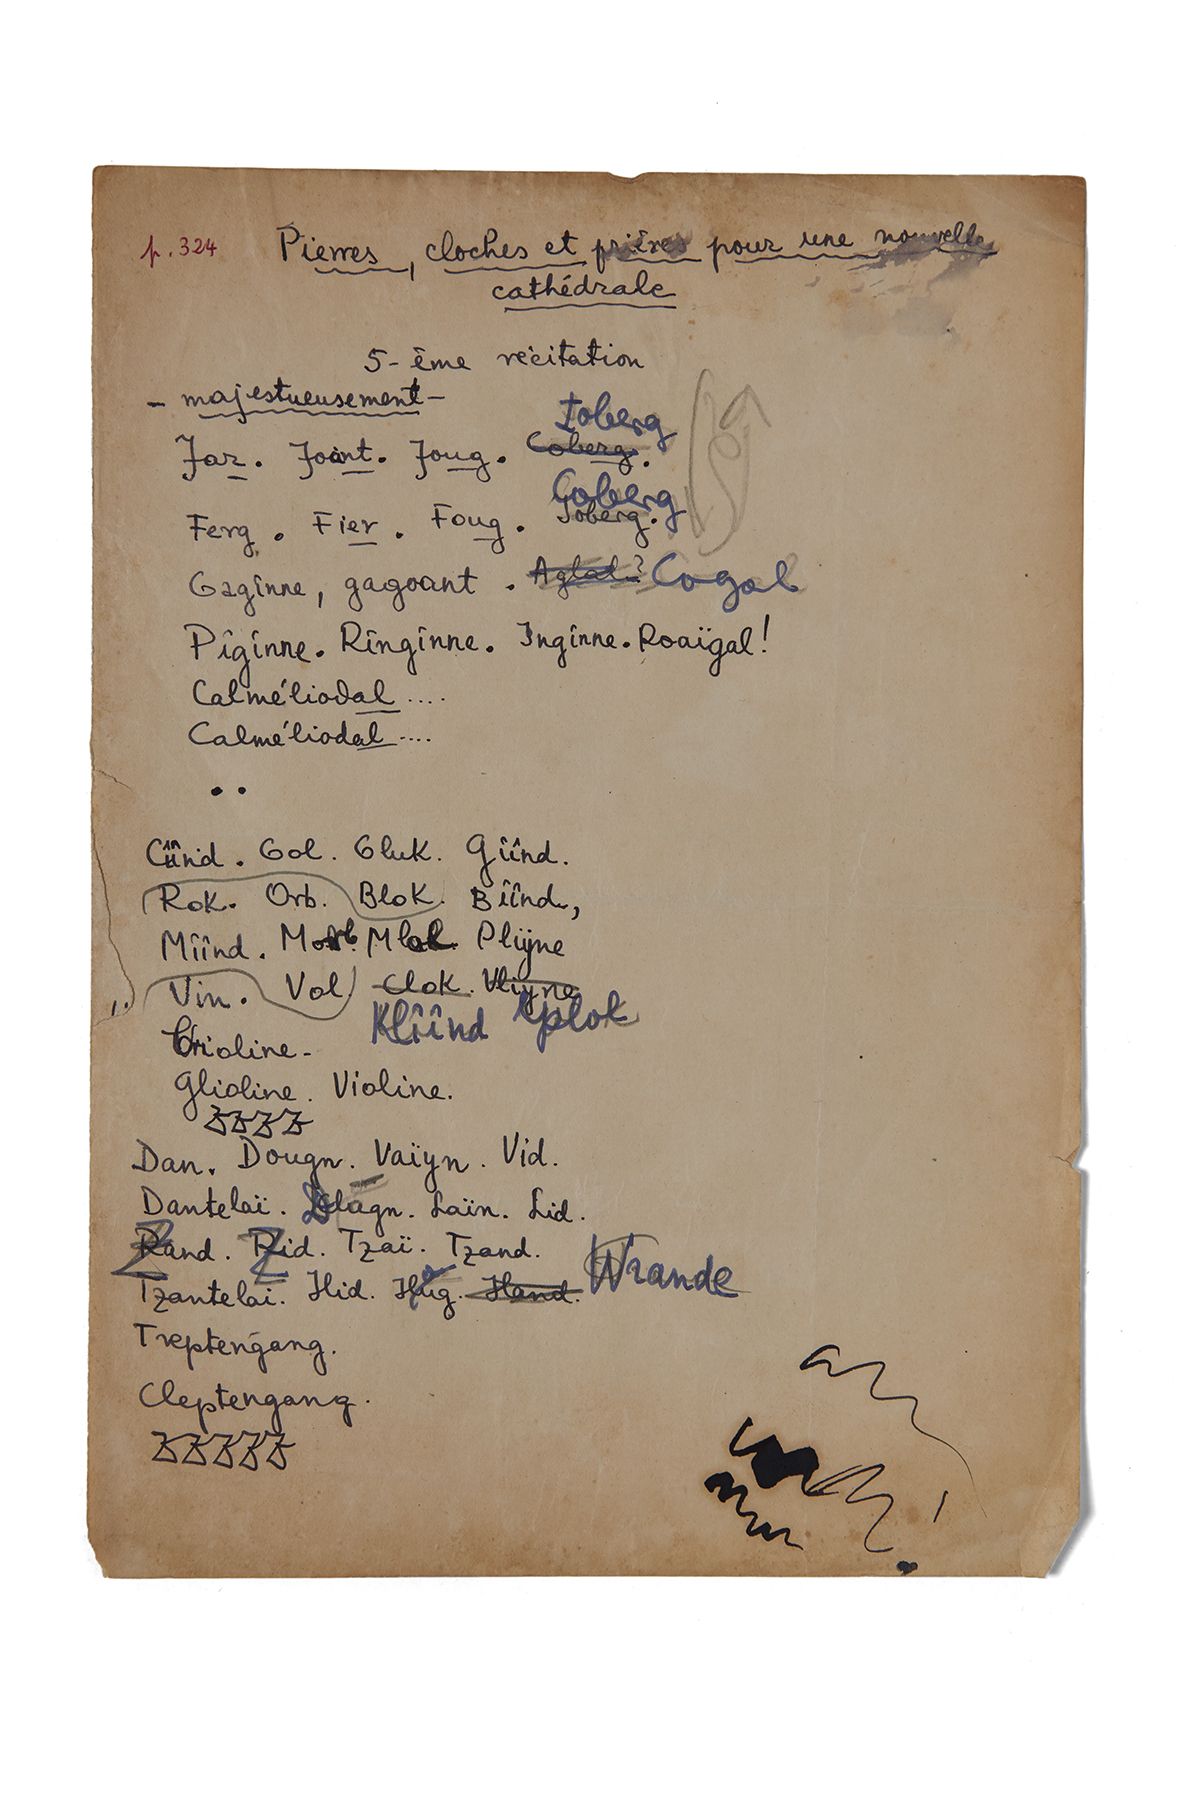 p. 324 Pierres, cloches et prières pour une nouvelle
cathédrale
5-ème récitation
- majestueusement -
Ioberg
Jar. Joint. Joug. Coberg.
Coberg
Ferg. Fier. Foug. Joberg.
Gaginne, gagoant. Aglal? Cogal
Piginne. Ringinne. Inginne. Roaïgal!
Calméliodal ....
Calméliodal ....
..
Cîînd. Gol. Gluk. Gîînd.
Rok. Orb. Blok. Bîînd,
Mîînd. Morb. Mlok. Plijne
Vin. Vol. Clok. Vlijne
Klîînd Yplok
Crioline-
Glioline. Violine.
ZZZZ
Dan. Dougn. Vaïyn. Vid.
Dantelaï. Dlagn. Laïn. Lid.
Zand. Zid. Tzaï. Tzand.
Tzantelaï. Hid. Hag. Hand. Wrande
Treptengang.
Cleptengang.
ZZZZZ